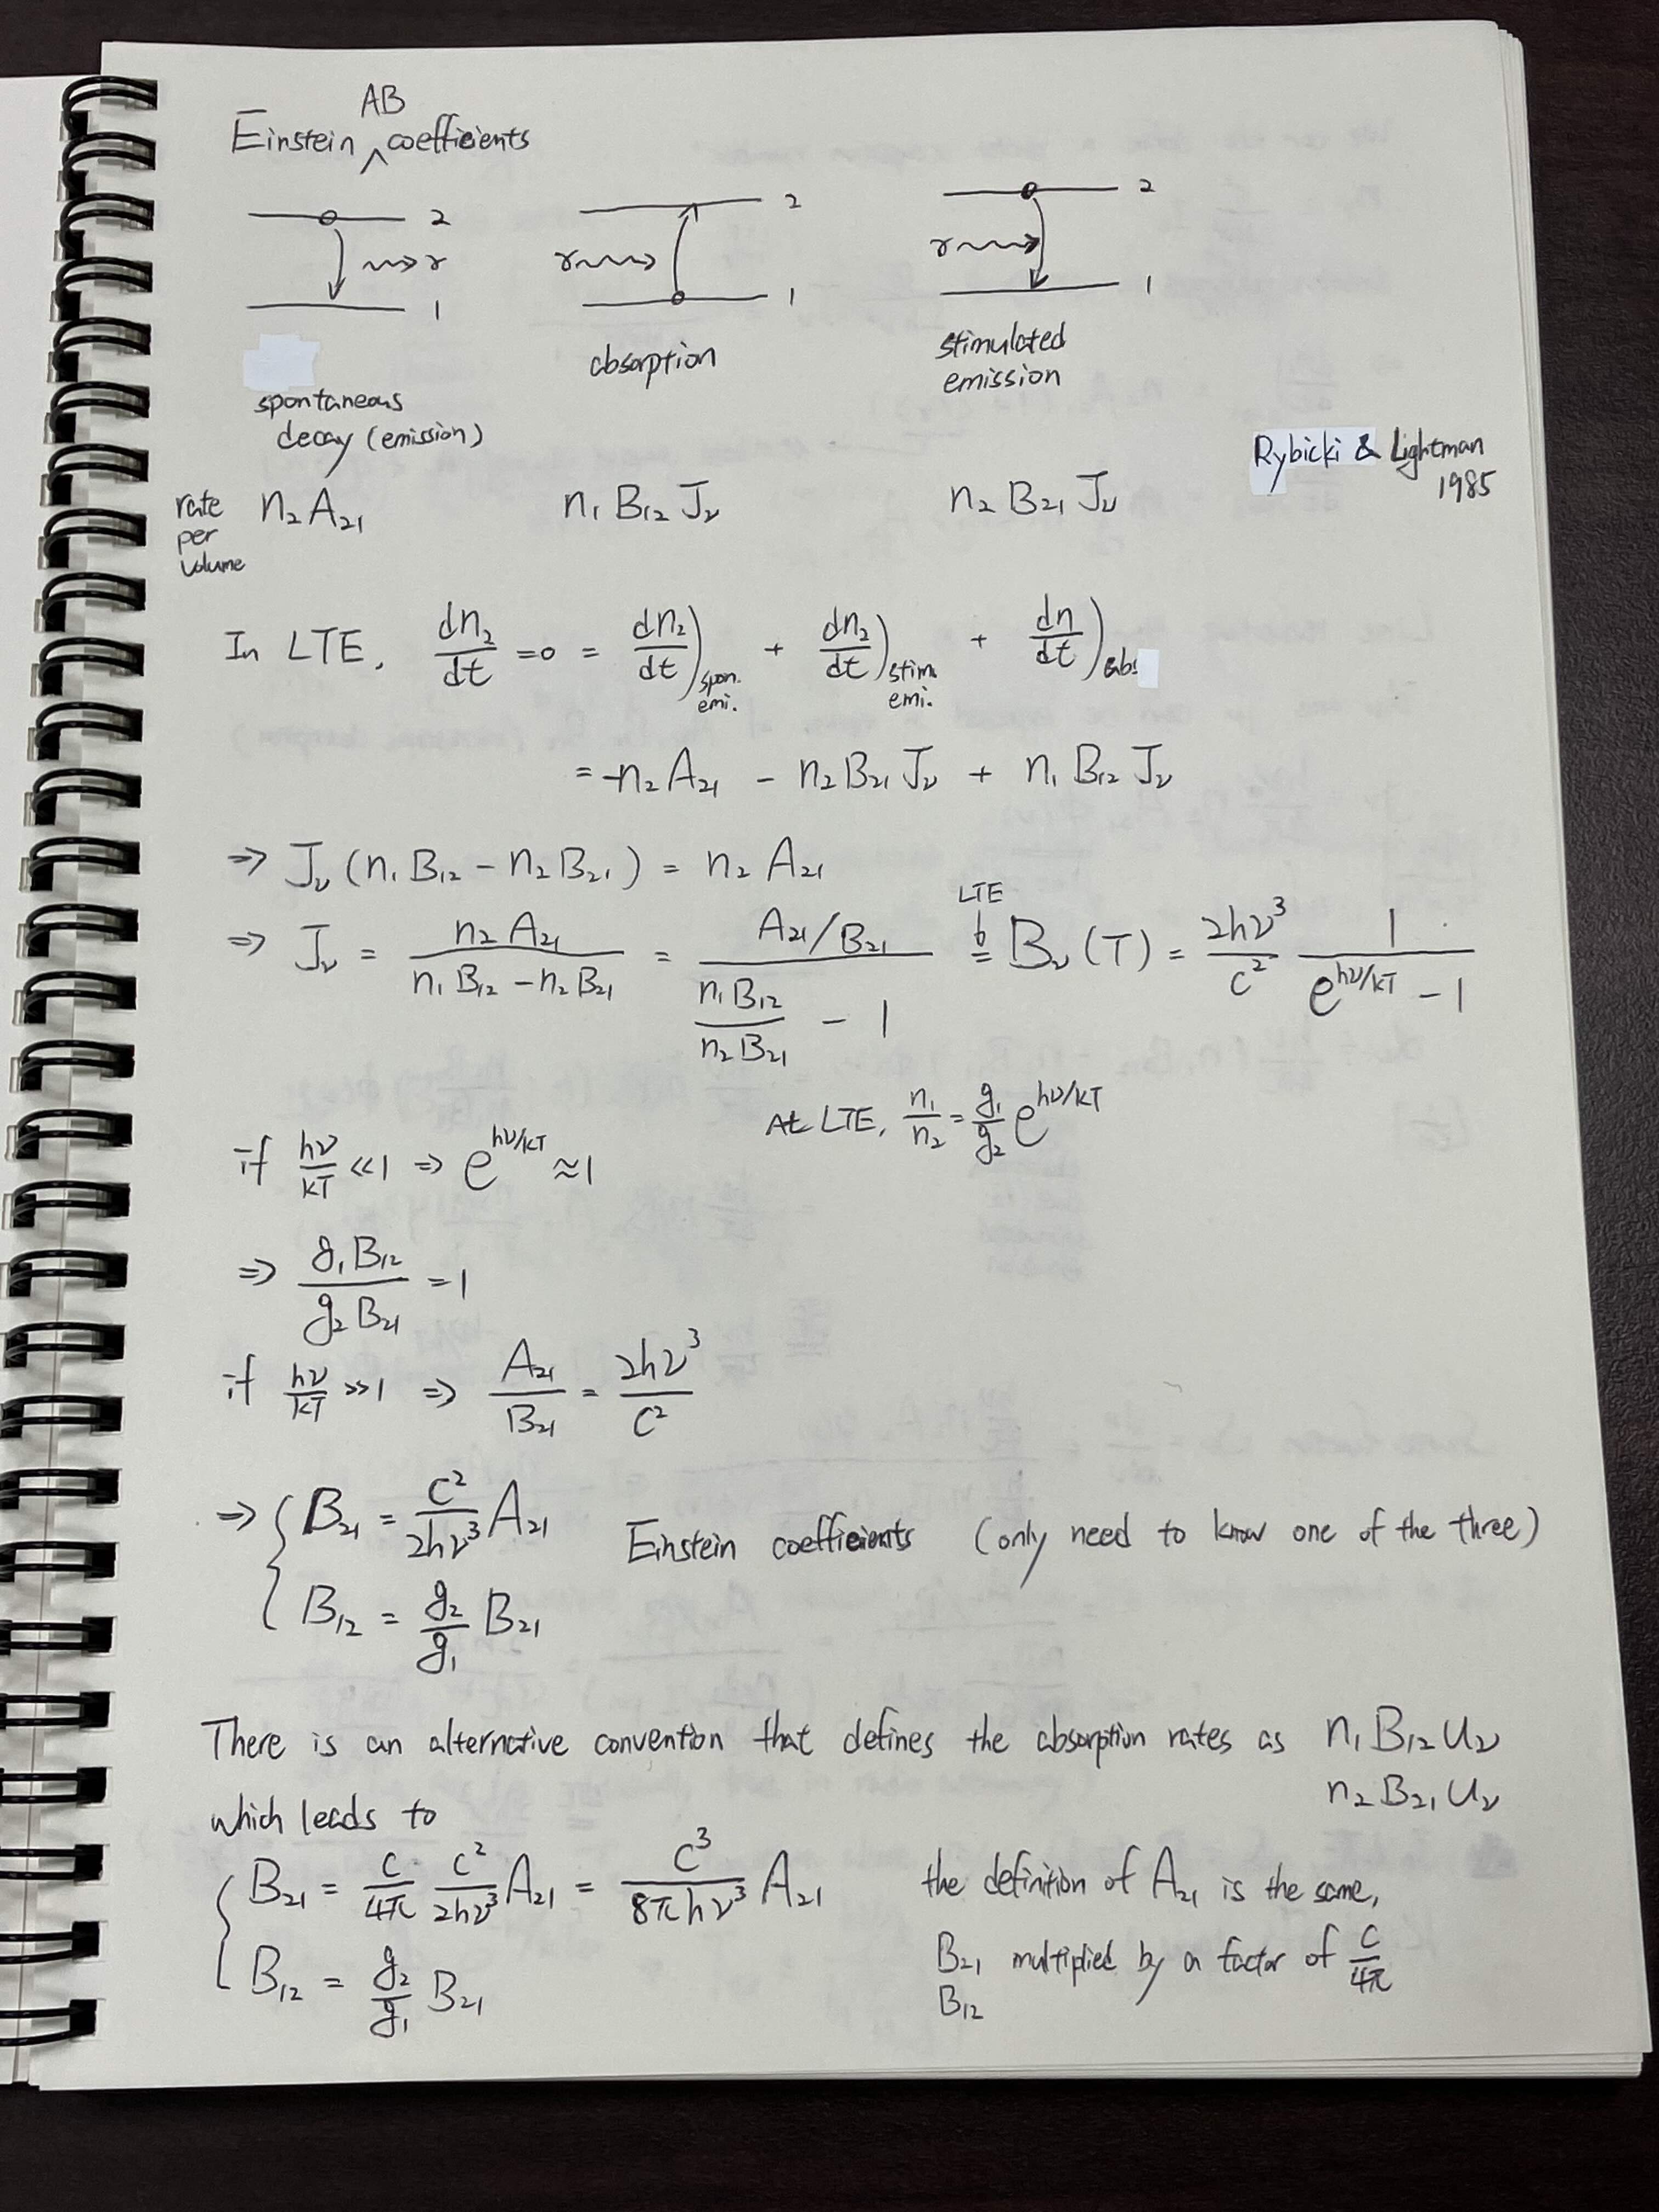 AB
Einstein ^ coefficients
2 2 2
γ γ γ
1 1 1
spontaneous decay (emission)
absorption
stimulated emission
Rybicki & Lightman 1985
rate per volume n₂A₂₁ n₁B₁₂Jν n₂B₂₁Jν
In LTE, dn₂/dt = 0 = dn₂/dt)spon. emi. + dn₂/dt)stim. emi. + dn/dt)abs
= -n₂A₂₁ - n₂B₂₁Jν + n₁B₁₂Jν
⇒ Jν(n₁B₁₂ - n₂B₂₁) = n₂A₂₁
⇒ Jν = n₂A₂₁/(n₁B₁₂ - n₂B₂₁) = (A₂₁/B₂₁)/(n₁B₁₂/n₂B₂₁ - 1) = LTE Bν(T) = 2hν³/c² 1/(e^(hν/kT) - 1)
At LTE, n₁/n₂ = g₁/g₂ e^(hν/kT)
if hν/kT << 1 ⇒ e^(hν/kT) ≈ 1
⇒ g₁B₁₂/g₂B₂₁ = 1
if hν/kT >> 1 ⇒ A₂₁/B₂₁ = 2hν³/c²
⇒ { B₂₁ = c²/2hν³ A₂₁ Einstein coefficients (only need to know one of the three)
B₁₂ = g₂/g₁ B₂₁
There is an alternative convention that defines the absorption rates as n₁B₁₂uν
n₂B₂₁uν
which leads to
{ B₂₁ = c/4π c²/2hν³ A₂₁ = c³/8πhν³ A₂₁ the definition of A₂₁ is the same,
B₁₂ = g₂/g₁ B₂₁ B₂₁ multiplied by a factor of c/4π
B₁₂